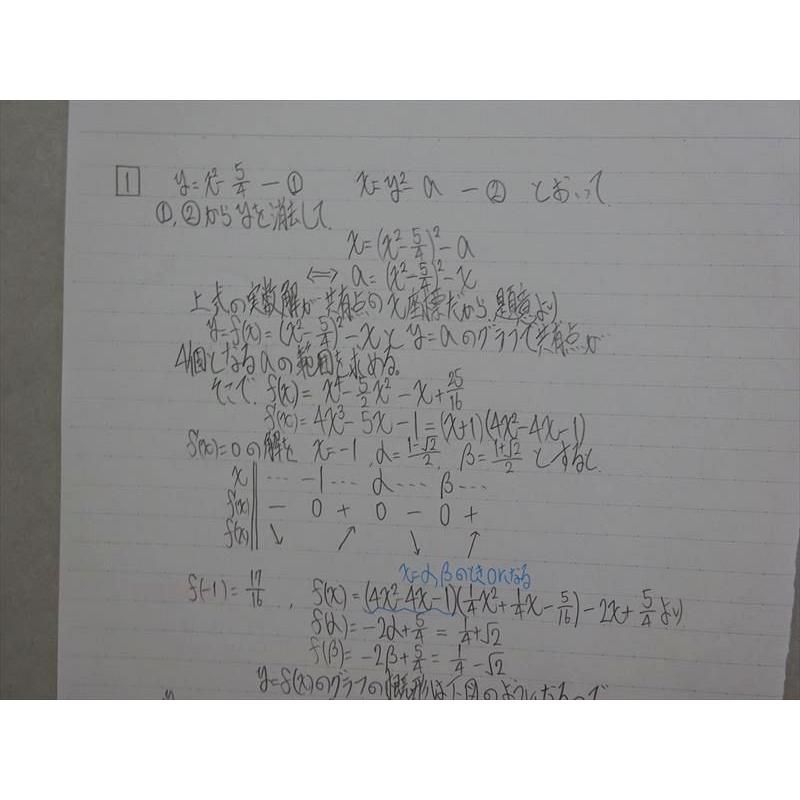 1 y=x²-5/4 ─① x=y²-a ─② とおいて
①,②からyを消去して
x=(x²-5/4)²-a
⇔ a=(x²-5/4)²-x
上式の実数解が共有点のx座標だから、題意より
y=f(x)=(x²-5/4)²-xとy=aのグラフで共有点が
4個となるaの範囲を求める。
そこで f(x)=x⁴-5/2x²-x+25/16
f'(x)=4x³-5x-1=(x+1)(4x²-4x-1)
f'(x)=0の解を x=-1, α=1-√2/2, β=1+√2/2 とすると
x ⋯ -1 ⋯ α ⋯ β ⋯
f'(x) - 0 + 0 - 0 +
f(x) ↘ ↗ ↘ ↗
x=α,βのとき0になる
f(-1)=17/16, f(x)=(4x²-4x-1)(1/4x²+1/4x-5/16)-2x+5/4より
f(α)=-2α+5/4=1/4+√2
f(β)=-2β+5/4=1/4-√2
y=f(x)のグラフの概形は下図のようになるので